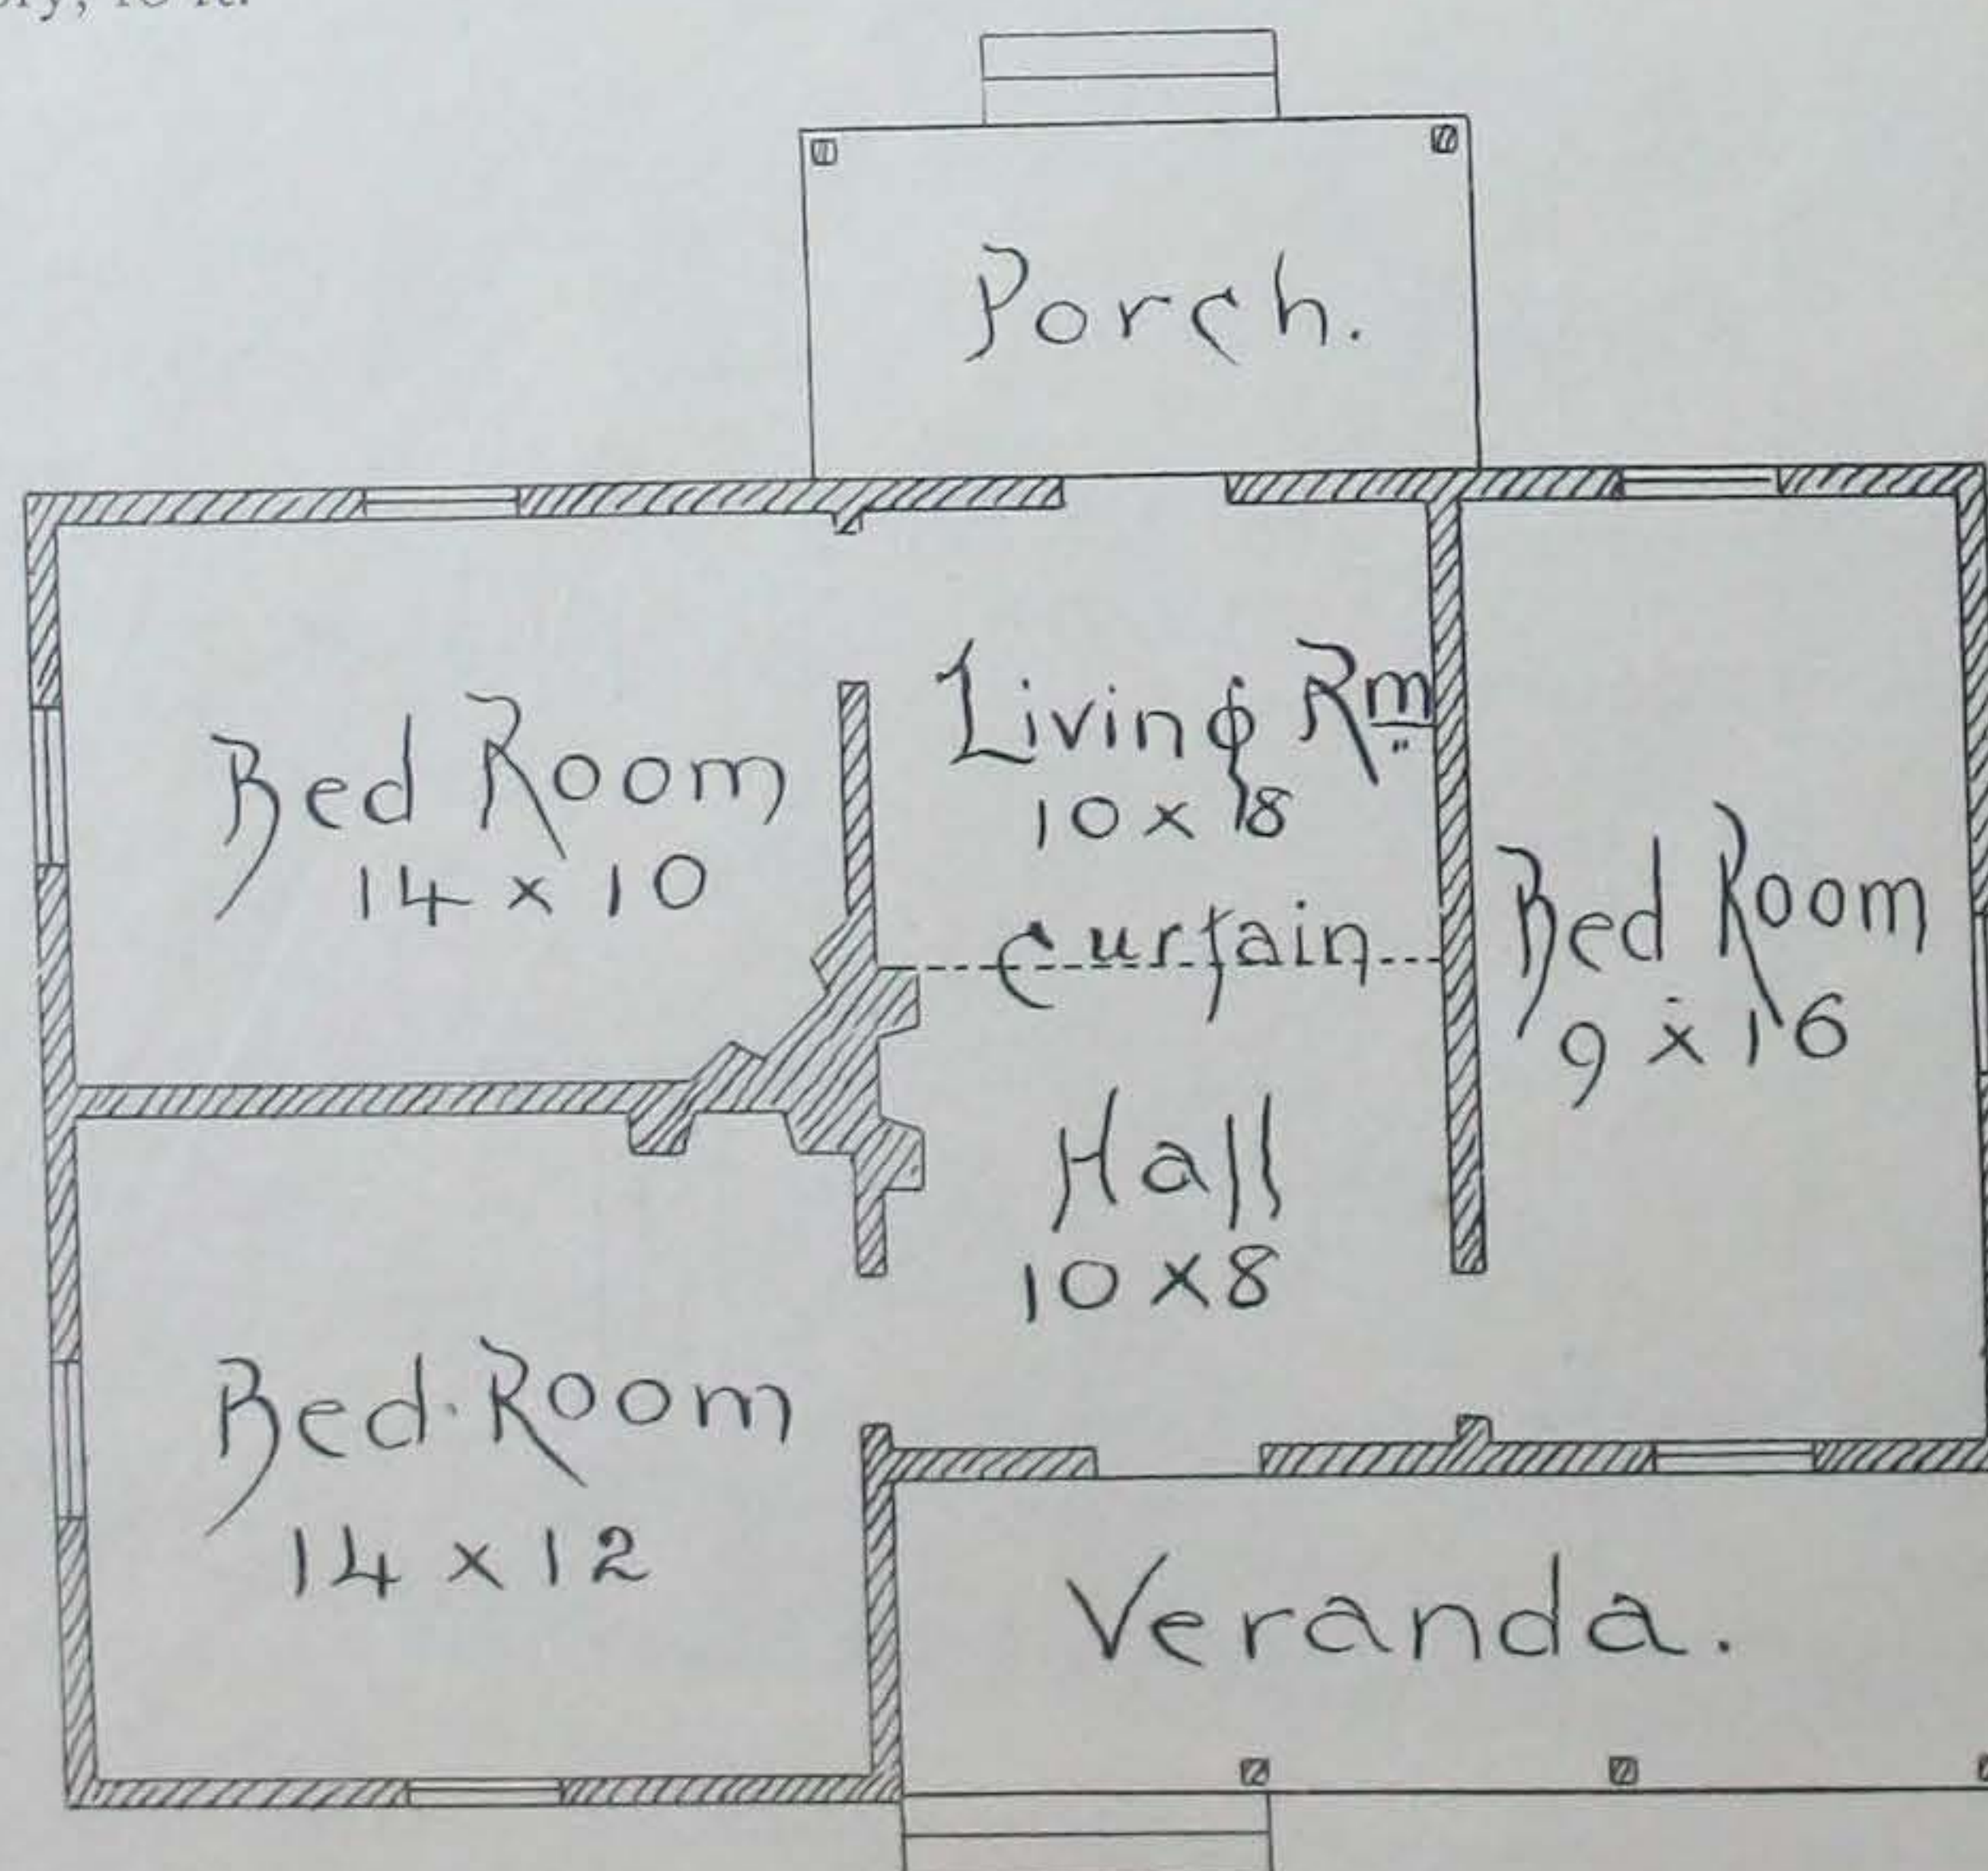 Porch.
Bed Room
14 x 10
Living Rm
10 x 8
Curtain
Bed Room
9 x 16
Hall
10 x 8
Bed Room
14 x 12
Veranda.